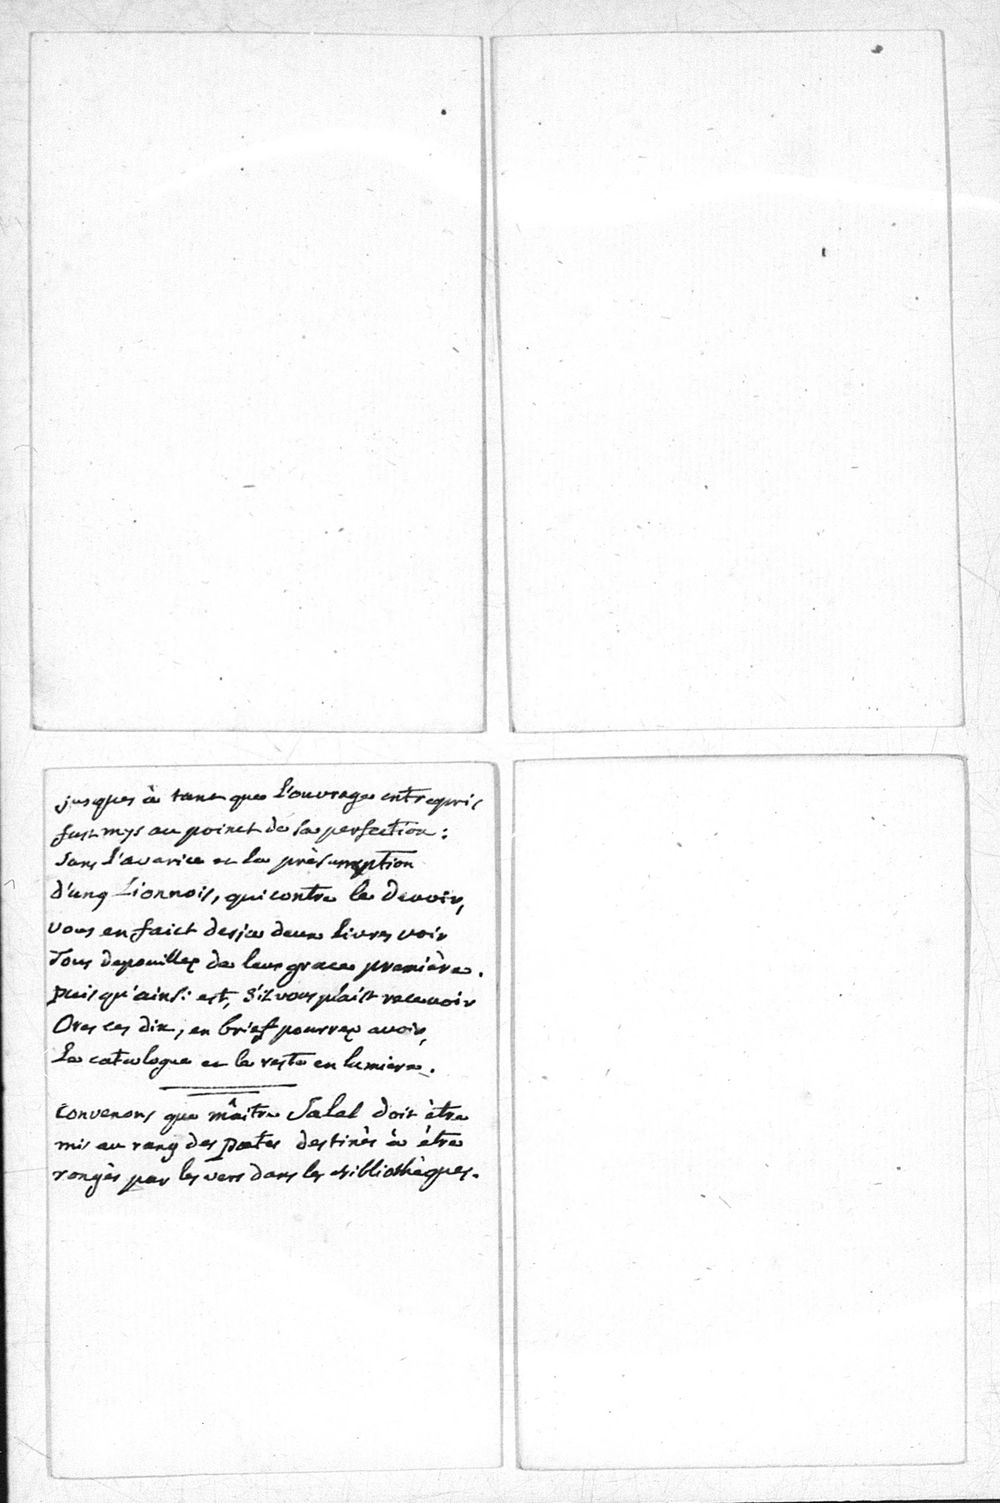 jusques à tant que l'ouvrage entrepris
fust mys au poinct de sa perfection:
sans l'avarice et la présumption
d'ung Lionnois, qui contre le devoir,
vous en faict desja deux livres voir
Tous depouillez de leur grace première.
puis qu'ainsi est, s'il vous plaist recevoir
Ores ces dix, en brief pourrez avoir,
Le catalogue et le reste en lumiere.
convenons que maître Salel doit être
mis au rang des poetes destinés à être
rongés par les vers dans les bibliothèques.